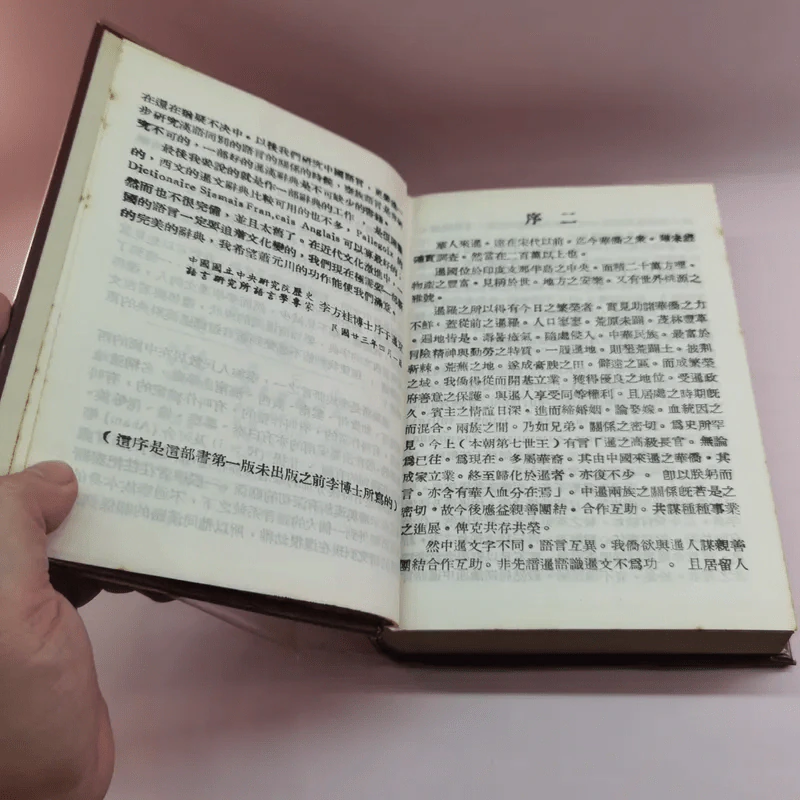 在還在辯疑不决中。以後我們研究中國語言，
步研究漢語同別的語言的關係的時候，
究不可的，一部好的暹漢辭典是不可缺少的書籍。
最後我要說的就是作一部辭典的工作，
的，西文的暹文辭典比較可用的也不多，Pallegoix 的
Dictionaire Siamais Fran,cais Anglais 可以算最好的，
然而也不很完備，並且太舊了。在近代文化激進中，
國的語言一定要追着文化變的，我們現在極需要一部
的完美的辭典，我希望蕭元川的功作能使我們滿意。
中國國立中央研究院歷史
語言研究所語言學專家 李方桂博士序于暹京
民國廿三年二月一
（這序是這部書第一版未出版之前李博士所寫的）
序二
華人來暹。遠在宋代以前。迄今華僑之衆。雖未經
確實調查。然當在二百萬以上也。
暹國位於印度支那半島之中央。面積二十萬方哩。
物產之豐富。見稱於世。地方之安樂。又有世外桃源之
雅號。
暹羅之所以得有今日之繁榮者。實見助諸華僑之力
不鮮，蓋從前之暹羅。人口寥寥。荒原未闢。茂林豐草
。遍地皆是。毒暑瘧氣。隨處侵入。中華民族。最富於
冒險精神與勤勞之特質。一履暹地。則墾荒闢土。披荆
斬棘。荒蕪之地。遂成膏腴之田。僻遠之區。而成繁榮
之域。我僑得從而開基立業。獲得優良之地位。受暹政
府善意之保護。與暹人享受同等權利。且居留之時期旣
久。賓主之情誼日深。進而締婚姻。論娶嫁。血統因之
而混合。兩族之間。乃如兄弟。關係之密切。爲史所罕
見。今上（本朝第七世王）有言「暹之高級長官。無論
爲已往。爲現在。多屬華裔。其由中國來暹之華僑。其
成家立業。終至歸化於暹者。亦復不少。卽以朕躬而
言。亦含有華人血分在焉」。中暹兩族之關係旣若是之
密切。故今後應益親善團結。合作互助。共謀種種事業
之進展。俾克共存共榮。
然中暹文字不同。語言互異。我僑欲與暹人謀親善
團結合作互助。非先諳暹語識暹文不爲功。且居留人